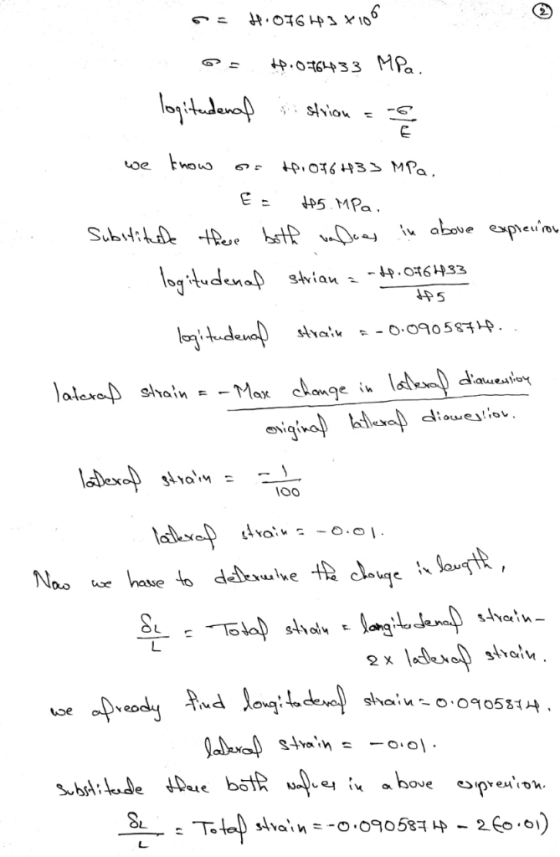 ②
σ = 4.076433 × 10⁶
σ = 4.076433 MPa.
logitudenal strian = -σ/E
we know σ = 4.076433 MPa.
E = 45 MPa.
Substitute these both values in above expression
logitudenal strian = -4.076433/45
logitudenal strain = -0.0905874.
lateral strain = - Max change in lateral diamension / original lateral diamestion.
lateral strain = -1/100
lateral strain = -0.01.
Now we have to determine the change in length,
δL/L = Total strain = longitudenal strain -
2 x lateral strain.
we already find longitudenal strain = 0.0905874.
lateral strain = -0.01.
Substitude these both values in above expression.
δL/L = Total strain = -0.0905874 - 2(-0.01)